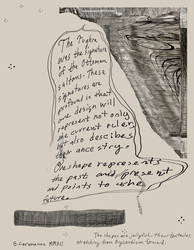 The Tughra
was the signature
of the Ottoman
sultans. These
signatures are
profound in that
one design will
represent not only
the current ruler
but also descibes
the ancestry.
One shape represents
the past and present
and points to the
future.
The shapes are jellyfish. Their tentacles
stretching from Byzantium forward.